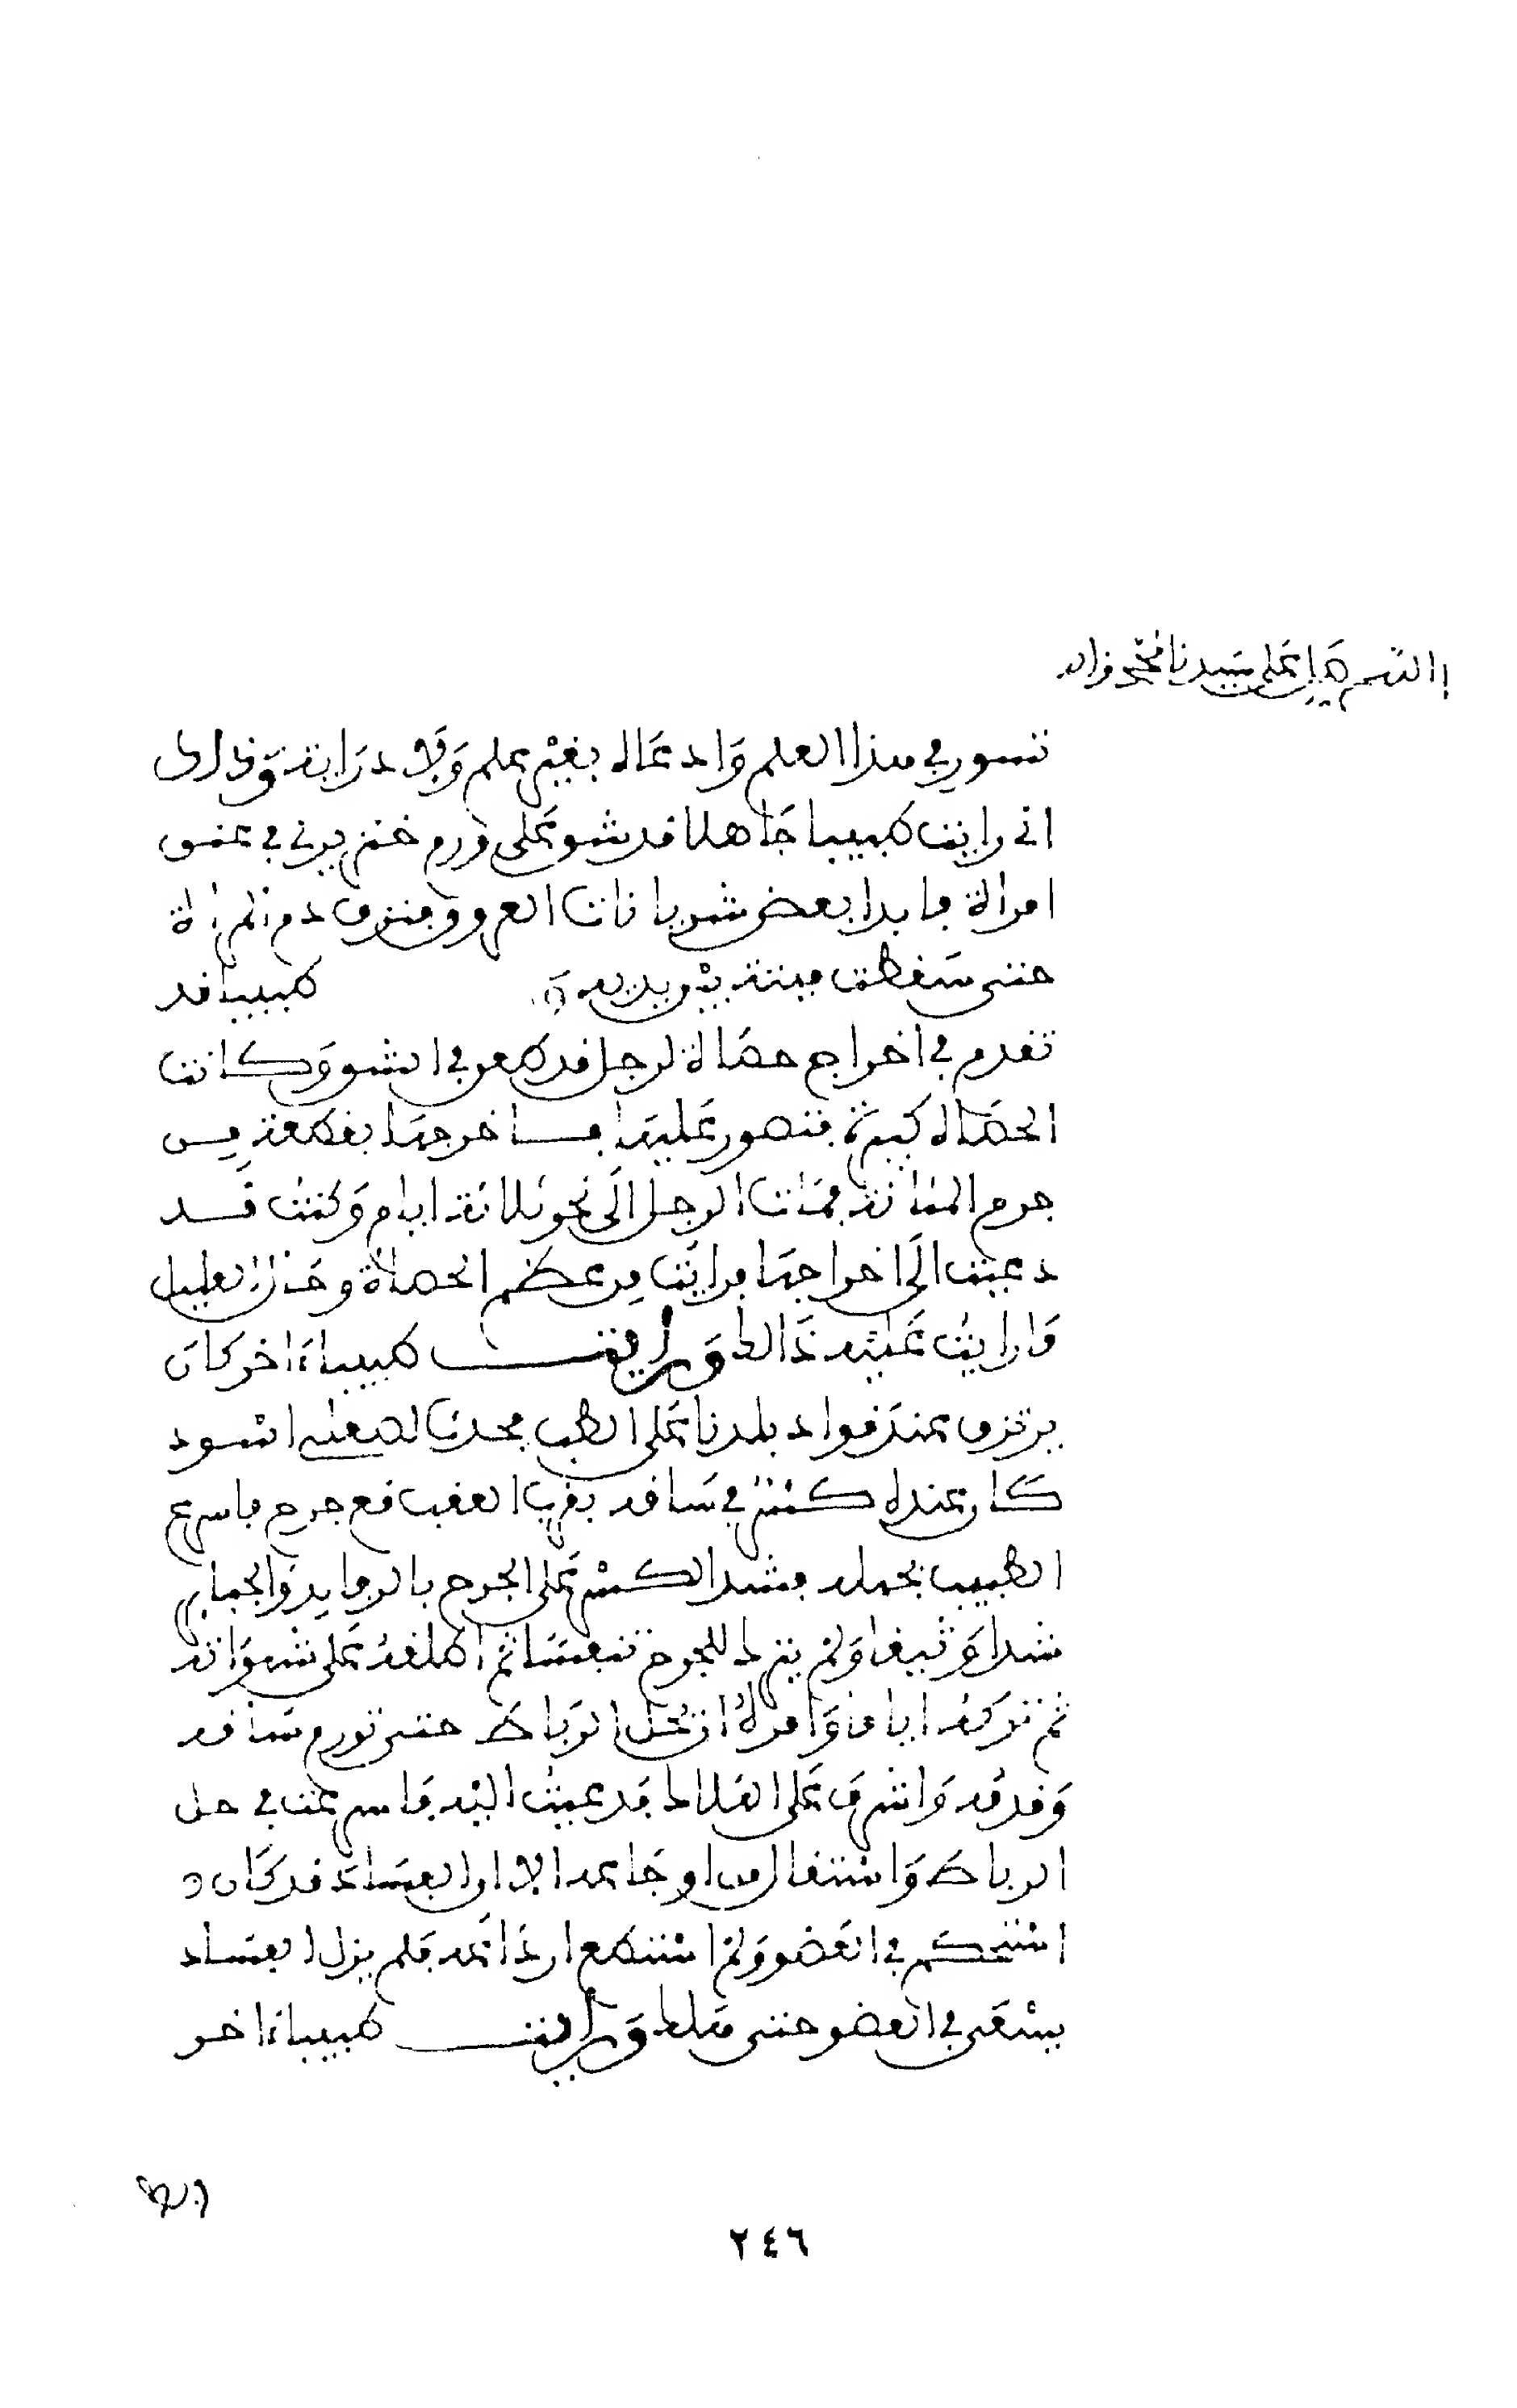 اللهم صل على سيدنا محمد واله
تسور في هذا العلم وادعاه بغير علم ولا دراية وذلك
اني رايت طبيبا جاهلا قد شق على ورم خنزيري في عنق
امراة فابدا بعض شريانات العروق فنزف دم المراة
حتى سقطت ميتة بين يديه و طبيبا قد
تقدم في اخراج حصاة لرجل قد طعن في السن وكانت
الحصاة كبيرة فتهور عليها فاخرجها بقطعة من
جرم المثانة فمات الرجل الى نحو ثلاثة ايام وكنت قد
دعيت الى اخراجها فرايت من عظم الحصاة وحال العليل
ما رايت عليه ذالك ورايت طبيبا ءاخر كان
يرتزق عند قواد بلدنا على الطب فحدث لصقلبي اسود
كان عنده كسر في ساقه بقرب العقب مع جرح فاسرع
الطبيب بجهله فشد الكسر على الجرح بالرفايد والجباير
شدا وثيقا ولم يترك للجرح تنفسا ثم اطلقه على شهواته
ثم تركه اياما وامره ان لا يحل الرباط حتى تورم ساقه
وقدمه واشرف على الهلاك فدعيت اليه فاسرعت في حل
الرباط واستقال من اوجاعه الا ان الفساد قد كان
استحكم في العضو ولم استطع اردعه فلم يزل الفساد
يسعى في العضو حتى هلك ورايت طبيبا ءاخر
٢٤٦